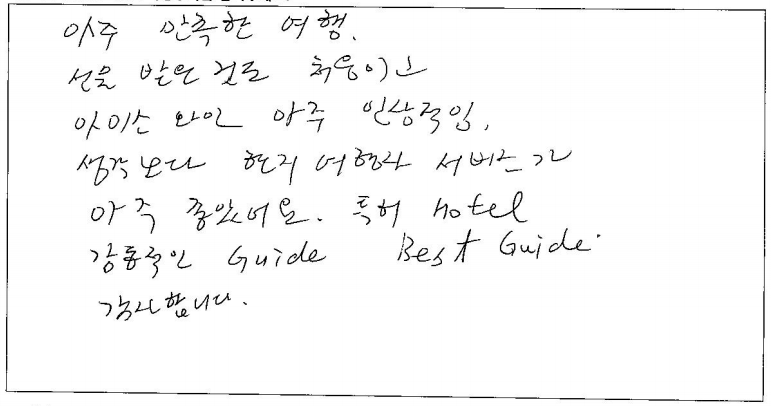 아주 만족한 여행.
선물 받은 것도 처음이고
아이스 와인 아주 인상적임.
생각보다 현지 여행사 서비스가
아주 좋았어요. 특히 Hotel
감동적인 Guide Best Guide.
감사합니다.